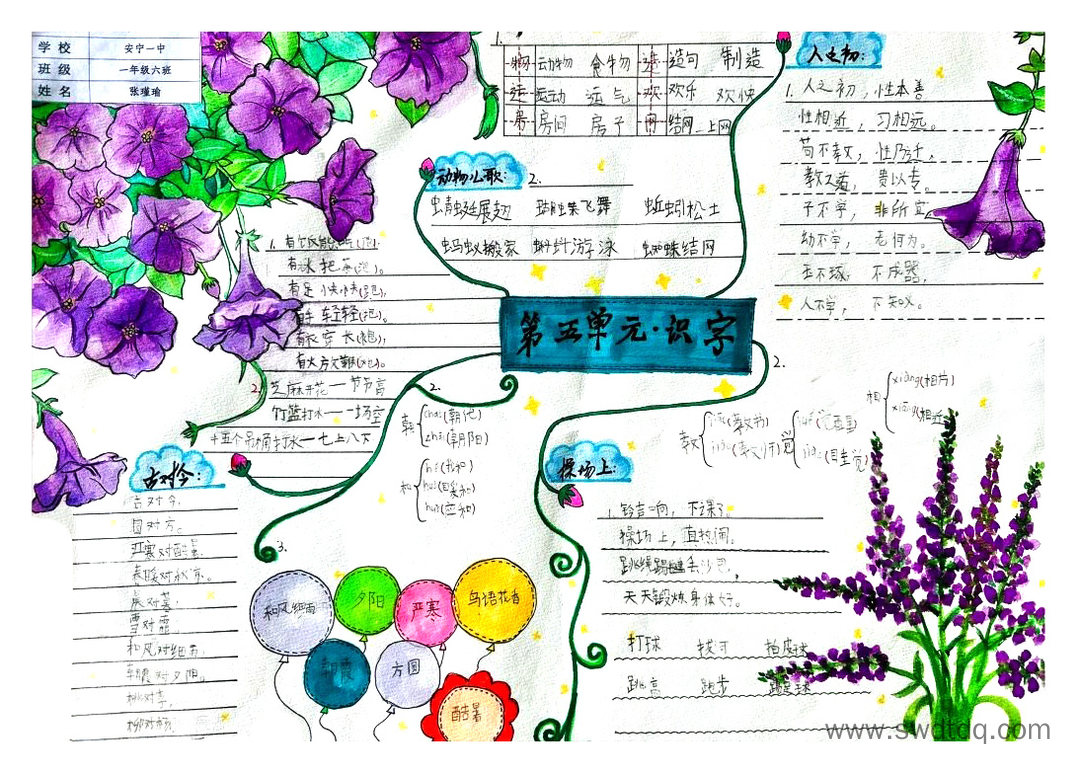 学校 安宁一中
班级 一年级六班
姓名 张瑾瑜
1.
物 动物 食物 造 造句 制造
运 运动 运气 欢 欢乐 欢快
房 房间 房子 网 结网 上网
人之初:
1. 人之初,性本善
性相近,习相远。
苟不教,性乃迁,
教之道,贵以专。
子不学,非所宜
幼不学,老何为。
玉不琢,不成器,
人不学,不知义。
动物儿歌: 2.
蜻蜓展翅 蝴蝶飞舞 蚯蚓松土
蚂蚁搬家 蝌蚪游泳 蜘蛛结网
第五单元·识字
1. 有饭
有水把茶(泡)。
有足
有手轻轻
有衣穿长(袍),
有火放
2. 芝麻开花——节节高
竹篮打水——一场空
十五个吊桶打水——七上八下
2.
朝 (朝代)
(朝阳)
和
2.
教 (教书)
觉
相 xiàng(相片)
xiāng(相近)
古对今:
古对今,
圆对方。
严寒对酷暑,
春暖对秋凉。
晨对暮,
雪对霜
和风对细雨,
朝霞对夕阳。
桃对李,
柳对杨,
3.
和风细雨
夕阳
严寒
鸟语花香
朝霞
方圆
酷暑
操场上:
1. 铃声响,下课了。
操场上,真热闹。
跳绳踢毽丢沙包,
天天锻炼身体好。
打球 拔河 拍皮球
跳高 跑步 踢足球
www.swdtdq.com